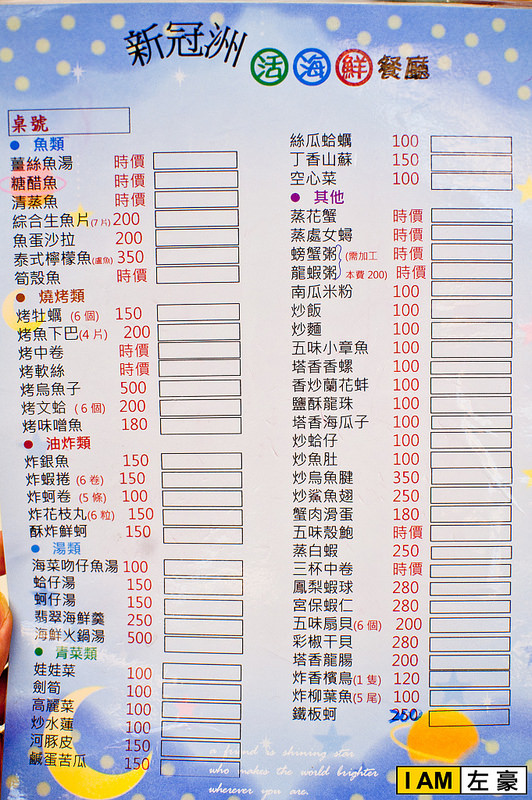 新冠洲
活海鮮餐廳
桌號
● 魚類
薑絲魚湯 時價
糖醋魚 時價
清蒸魚 時價
綜合生魚片(7片) 200
魚蛋沙拉 200
泰式檸檬魚(盧魚) 350
筍殼魚 時價
● 燒烤類
烤牡蠣 (6個) 150
烤魚下巴(4片) 200
烤中卷 時價
烤軟絲 時價
烤烏魚子 500
烤文蛤 (6個) 200
烤味噌魚 180
● 油炸類
炸銀魚 150
炸蝦捲 (6卷) 150
炸蚵卷 (5條) 100
炸花枝丸(6粒) 150
酥炸鮮蚵 150
● 湯類
海菜吻仔魚湯 100
蛤仔湯 150
蚵仔湯 150
翡翠海鮮羹 250
海鮮火鍋湯 500
● 青菜類
娃娃菜 100
劍筍 100
高麗菜 100
炒水蓮 100
河豚皮 150
鹹蛋苦瓜 150
絲瓜蛤蠣 100
丁香山蘇 150
空心菜 100
● 其他
蒸花蟹 時價
蒸處女蟳 時價
螃蟹粥 (需加工 時價
龍蝦粥 本費 200) 時價
南瓜米粉 100
炒飯 100
炒麵 100
五味小章魚 100
塔香香螺 100
香炒蘭花蚌 100
鹽酥龍珠 100
塔香海瓜子 100
炒蛤仔 100
炒魚肚 100
炒烏魚腱 350
炒鯊魚翅 250
蟹肉滑蛋 180
五味殼鮑 時價
蒸白蝦 250
三杯中卷 時價
鳳梨蝦球 280
宮保蝦仁 280
五味扇貝(6個) 200
彩椒干貝 280
塔香龍腸 200
炸香檳鳥(1隻) 120
炸柳葉魚(5尾) 100
鐵板蚵 250
a friend is shining star
who makes the world brighter
wherever you are.
I AM 左豪